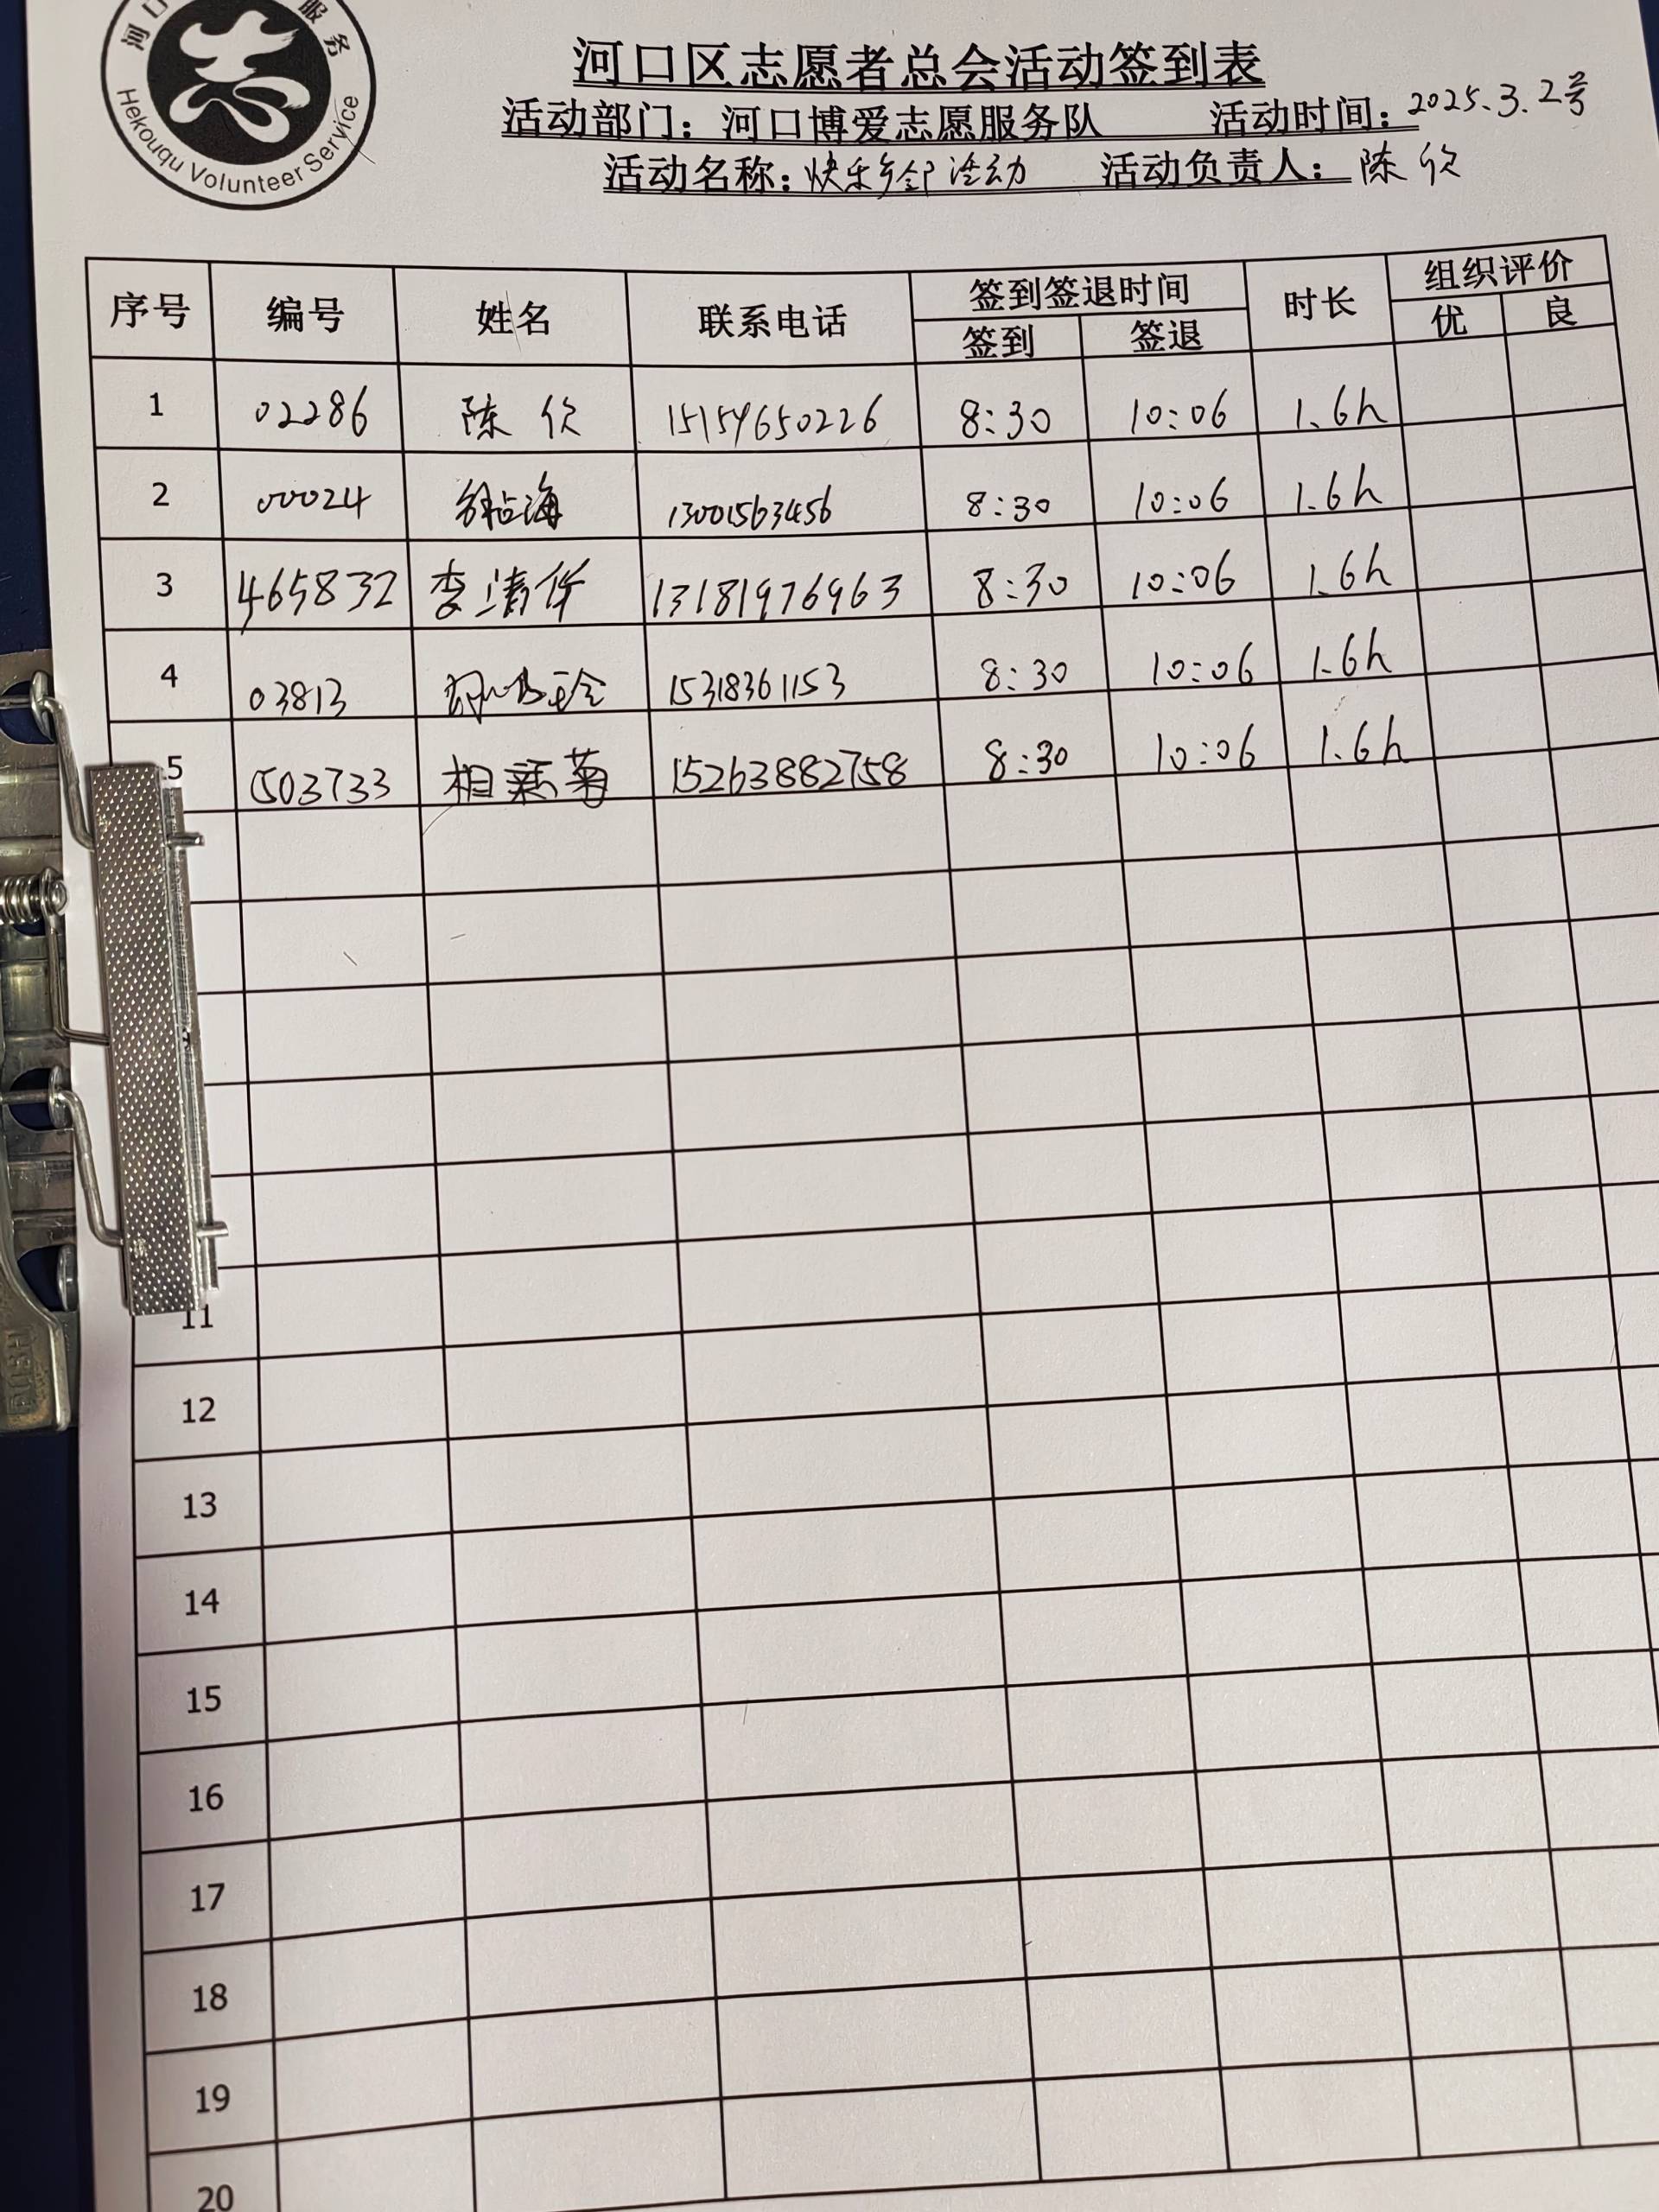 河口 服务
Hekouqu Volunteer Service
河口区志愿者总会活动签到表
活动部门：河口博爱志愿服务队 活动时间：2025.3.2号
活动名称：快乐乡邻活动 活动负责人：陈欣
序号 编号 姓名 联系电话 签到签退时间 时长 组织评价
签到 签退 优 良
1 02286 陈欣 15154650226 8:30 10:06 1.6h
2 00024 13001563456 8:30 10:06 1.6h
3 465832 李清华 13181976963 8:30 10:06 1.6h
4 03813 15318361153 8:30 10:06 1.6h
5 503733 相新菊 15263882758 8:30 10:06 1.6h
11
12
13
14
15
16
17
18
19
20